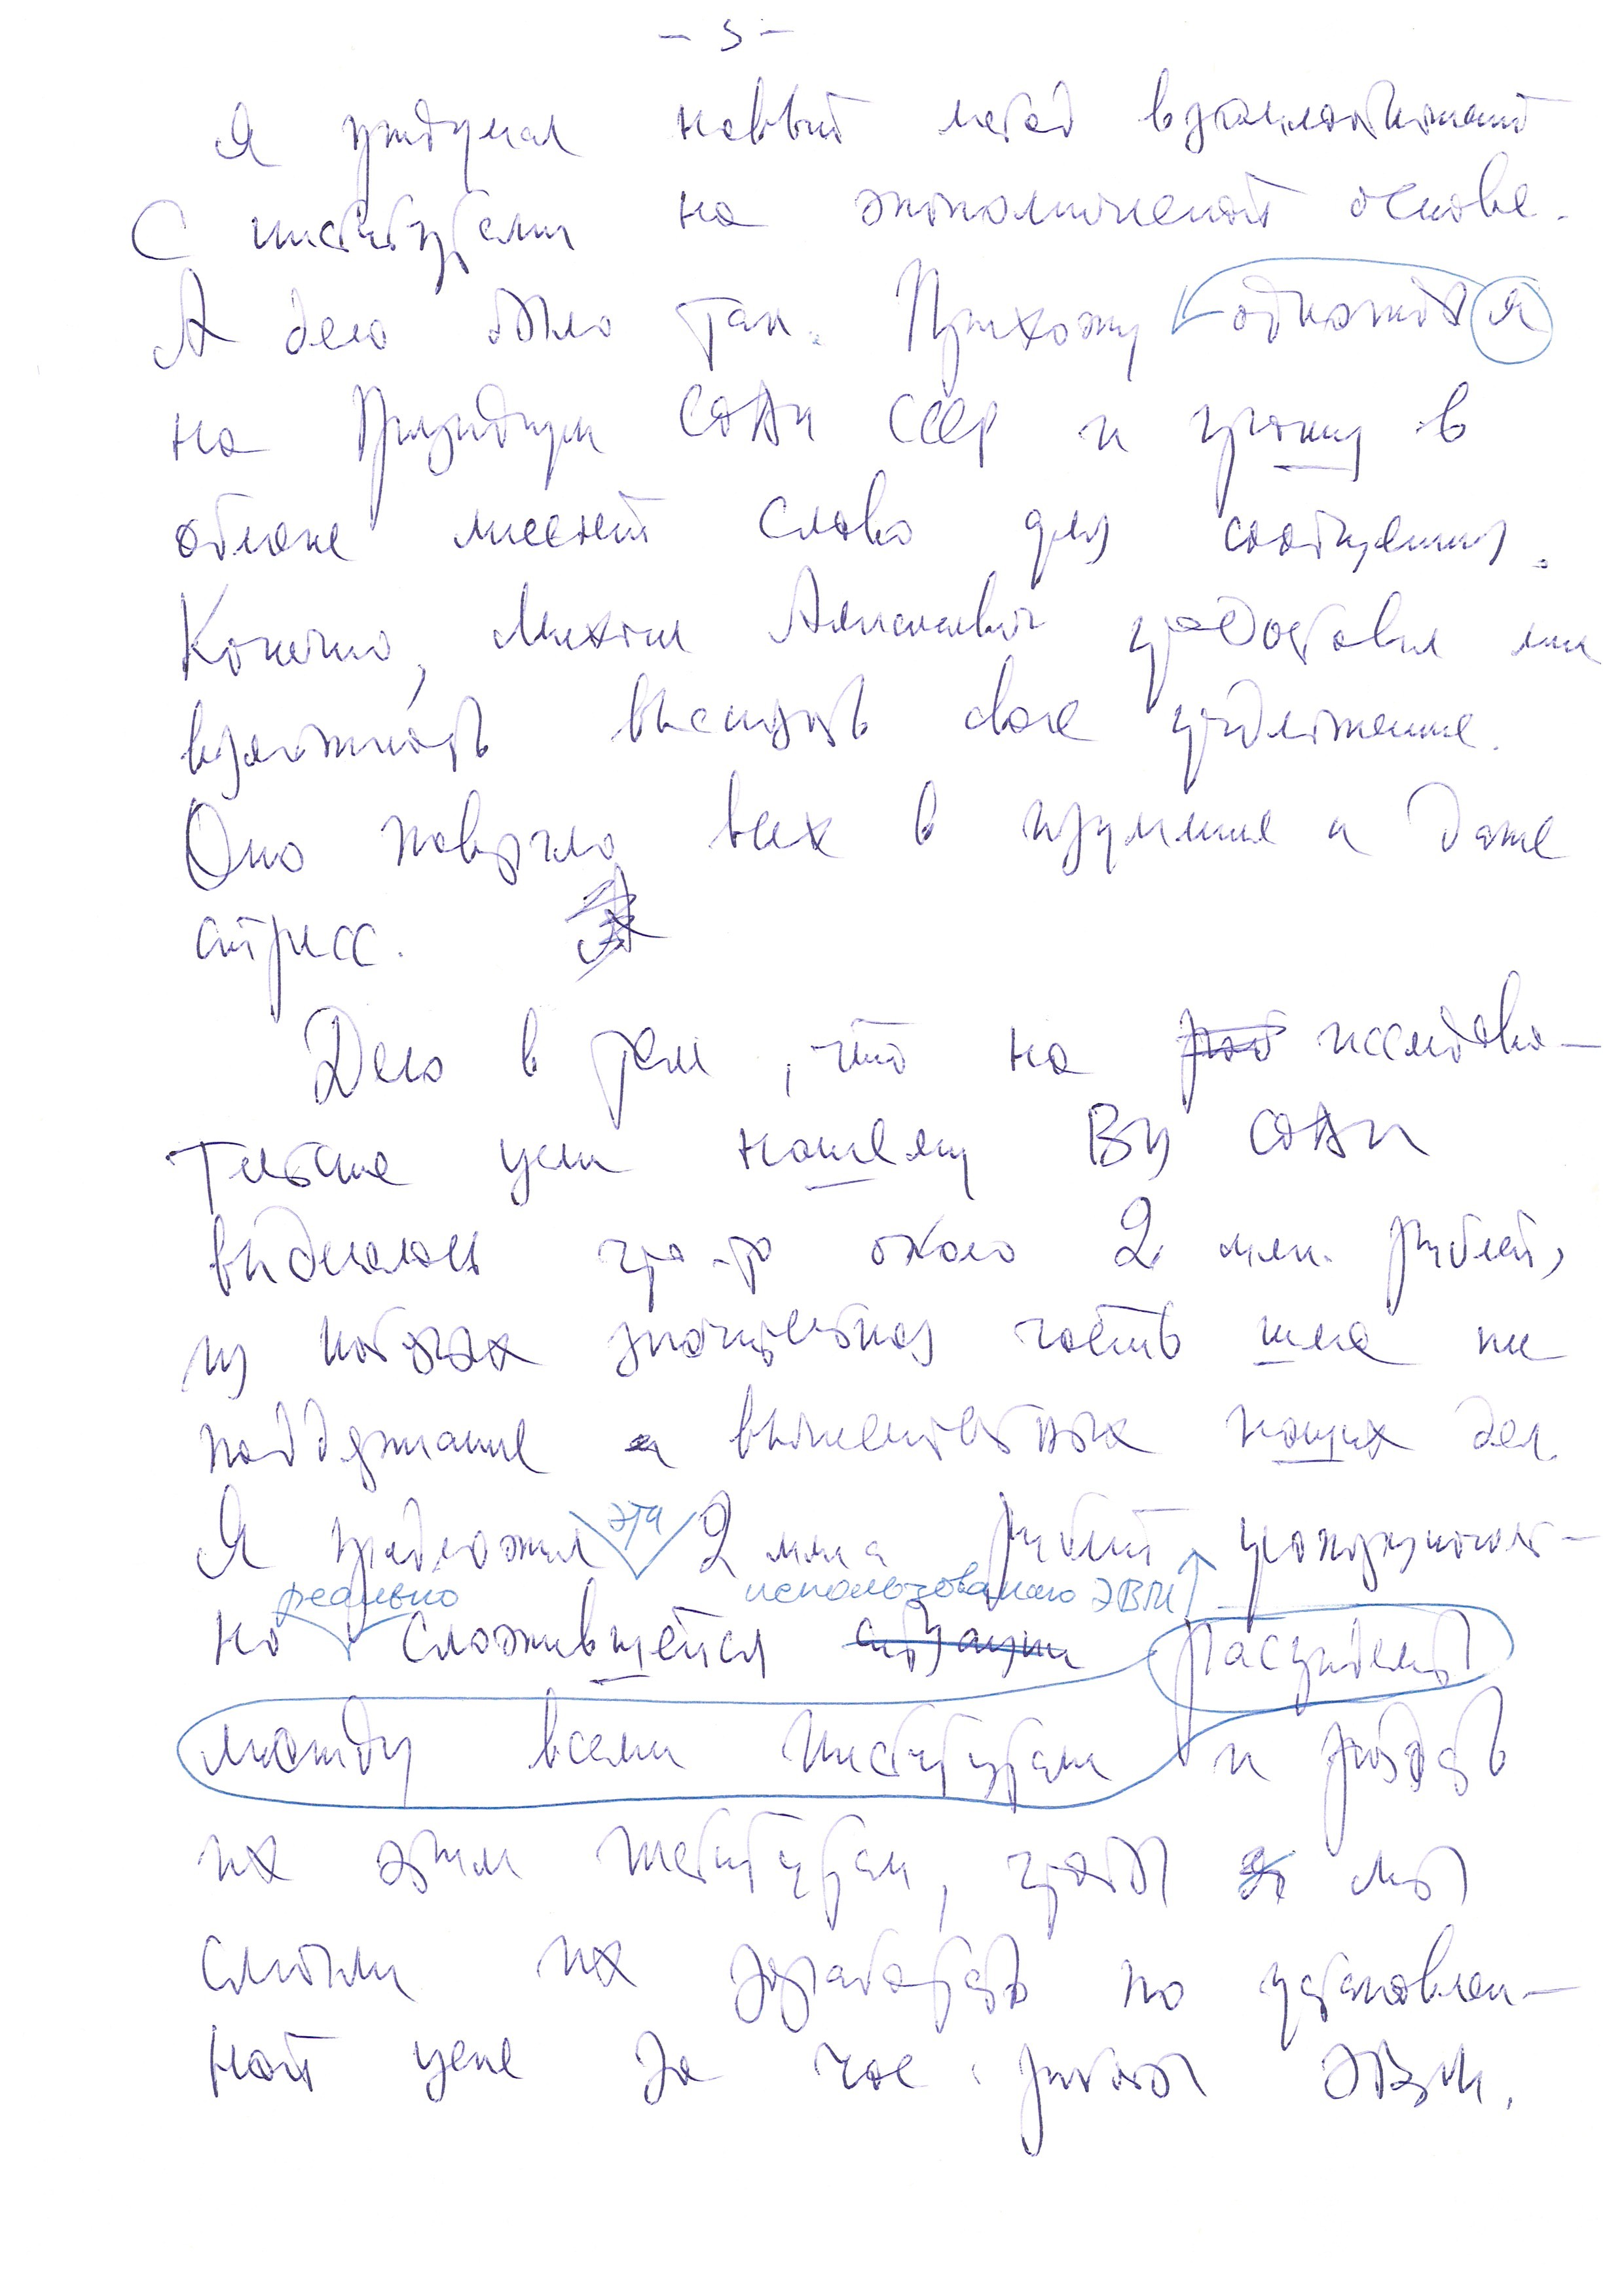 - 5 -
Я придумал новый метод взаимоотношений
с институтами на экономической основе.
А дело было так. Прихожу однажды я
на Президиум СОАН СССР и прошу в
обмене мнений слово для сообщения.
Конечно, Михаил Алексеевич предоставил мне
возможность высказать свое предложение.
Оно повергло всех в изумление и даже
стресс.
Дело в том, что на исследова-
тельские цели нашему ВЦ СОАН
выделялось где-то около 2 млн. рублей,
из которых значительная часть шла на
поддержание вычислительных наших дел.
Я предложил эти 2 млн. рублей пропорциональ-
реально использованию ЭВМ
но сложившейся ситуации распределить
между всеми институтами и раздать
их этим институтам, чтобы мы
смогли их заработать по установлен-
ной цене за час работы ЭВМ.